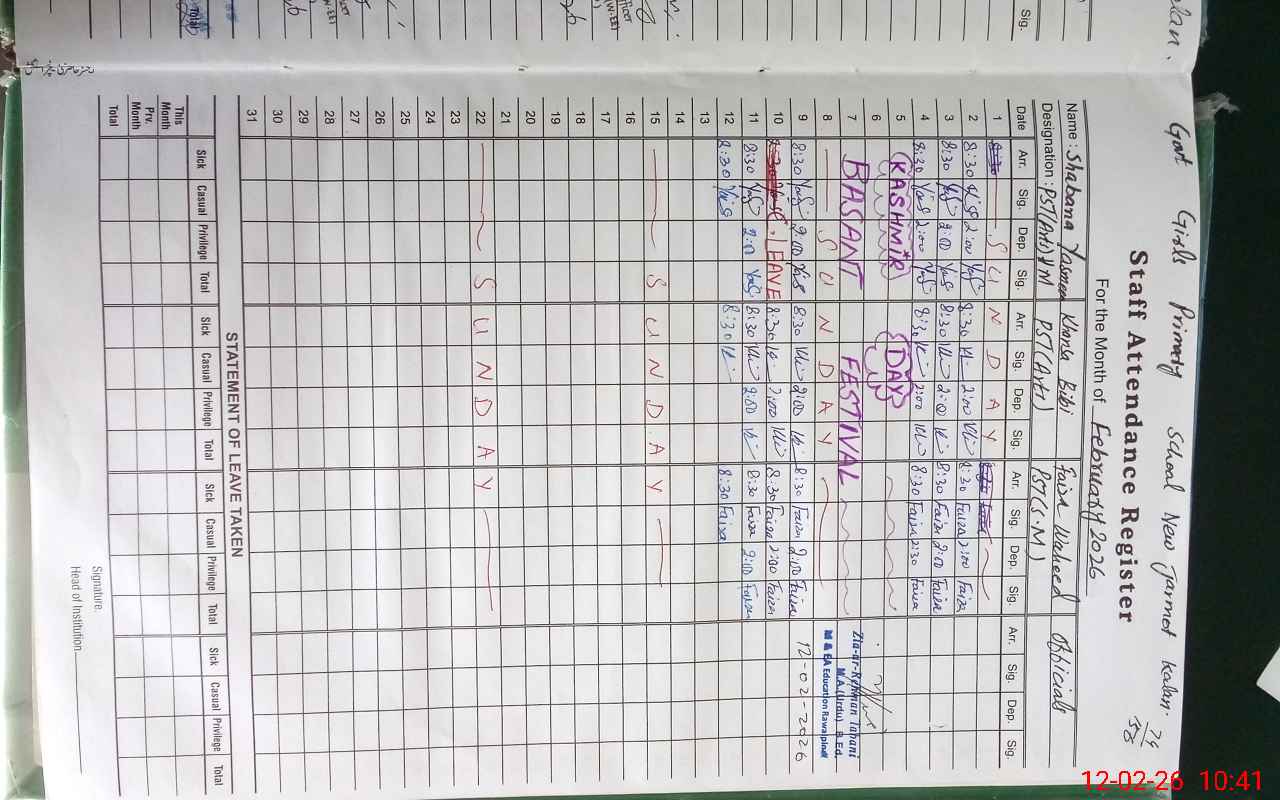 Govt Girls Primary School New Jarmot Kalan.
74
558
Staff Attendance Register
For the Month of February 2026
Name: Shabana Yasmeen Khansa Bibi Faiza Waheed Officials
Designation: PST(Arts)HM PST(Arts) PST(S.M)
Date Arr. Sig. Dep. Sig. Arr. Sig. Dep. Sig. Arr. Sig. Dep. Sig. Arr. Sig. Dep. Sig.
1 S U N D A Y
2 8:30 2:00 8:30 2:00 8:30 Faiza 2:00 Faiza
3 8:30 2:00 8:30 2:00 8:30 Faiza 2:00 Faiza
4 8:30 2:00 8:30 2:00 8:30 Faiza 2:30 Faiza
5 KASHMIR DAY
6
7 BASANT FESTIVAL
8 S U N D A Y
Zia-ur-Rehman Tabani
M.A.(Urdu) B.Ed.
M & EA Education Rawalpindi
9 8:30 2:00 8:30 2:00 8:30 Faiza 2:00 Faiza 12-02-2026
10 LEAVE 8:30 2:00 8:30 Faiza 2:00 Faiza
11 8:30 2:00 8:30 2:00 8:30 Faiza 2:00 Faiza
12 8:30 8:30 8:30 Faiza
13
14
15 S U N D A Y
16
17
18
19
20
21
22 S U N D A Y
23
24
25
26
27
28
29
30
31
STATEMENT OF LEAVE TAKEN
Sick Casual Privilege Total Sick Casual Privilege Total Sick Casual Privilege Total Sick Casual Privilege Total
This Month
Prv. Month
Total
Signature.
Head of Institution
Sig.
Total
12-02-26 10:41